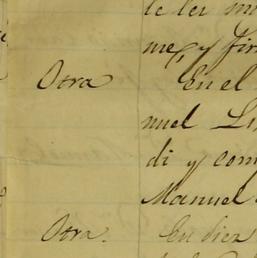 te ler
me, y fir
Otra En el
nuel Lu
di y com
Manuel
Otra. En diez